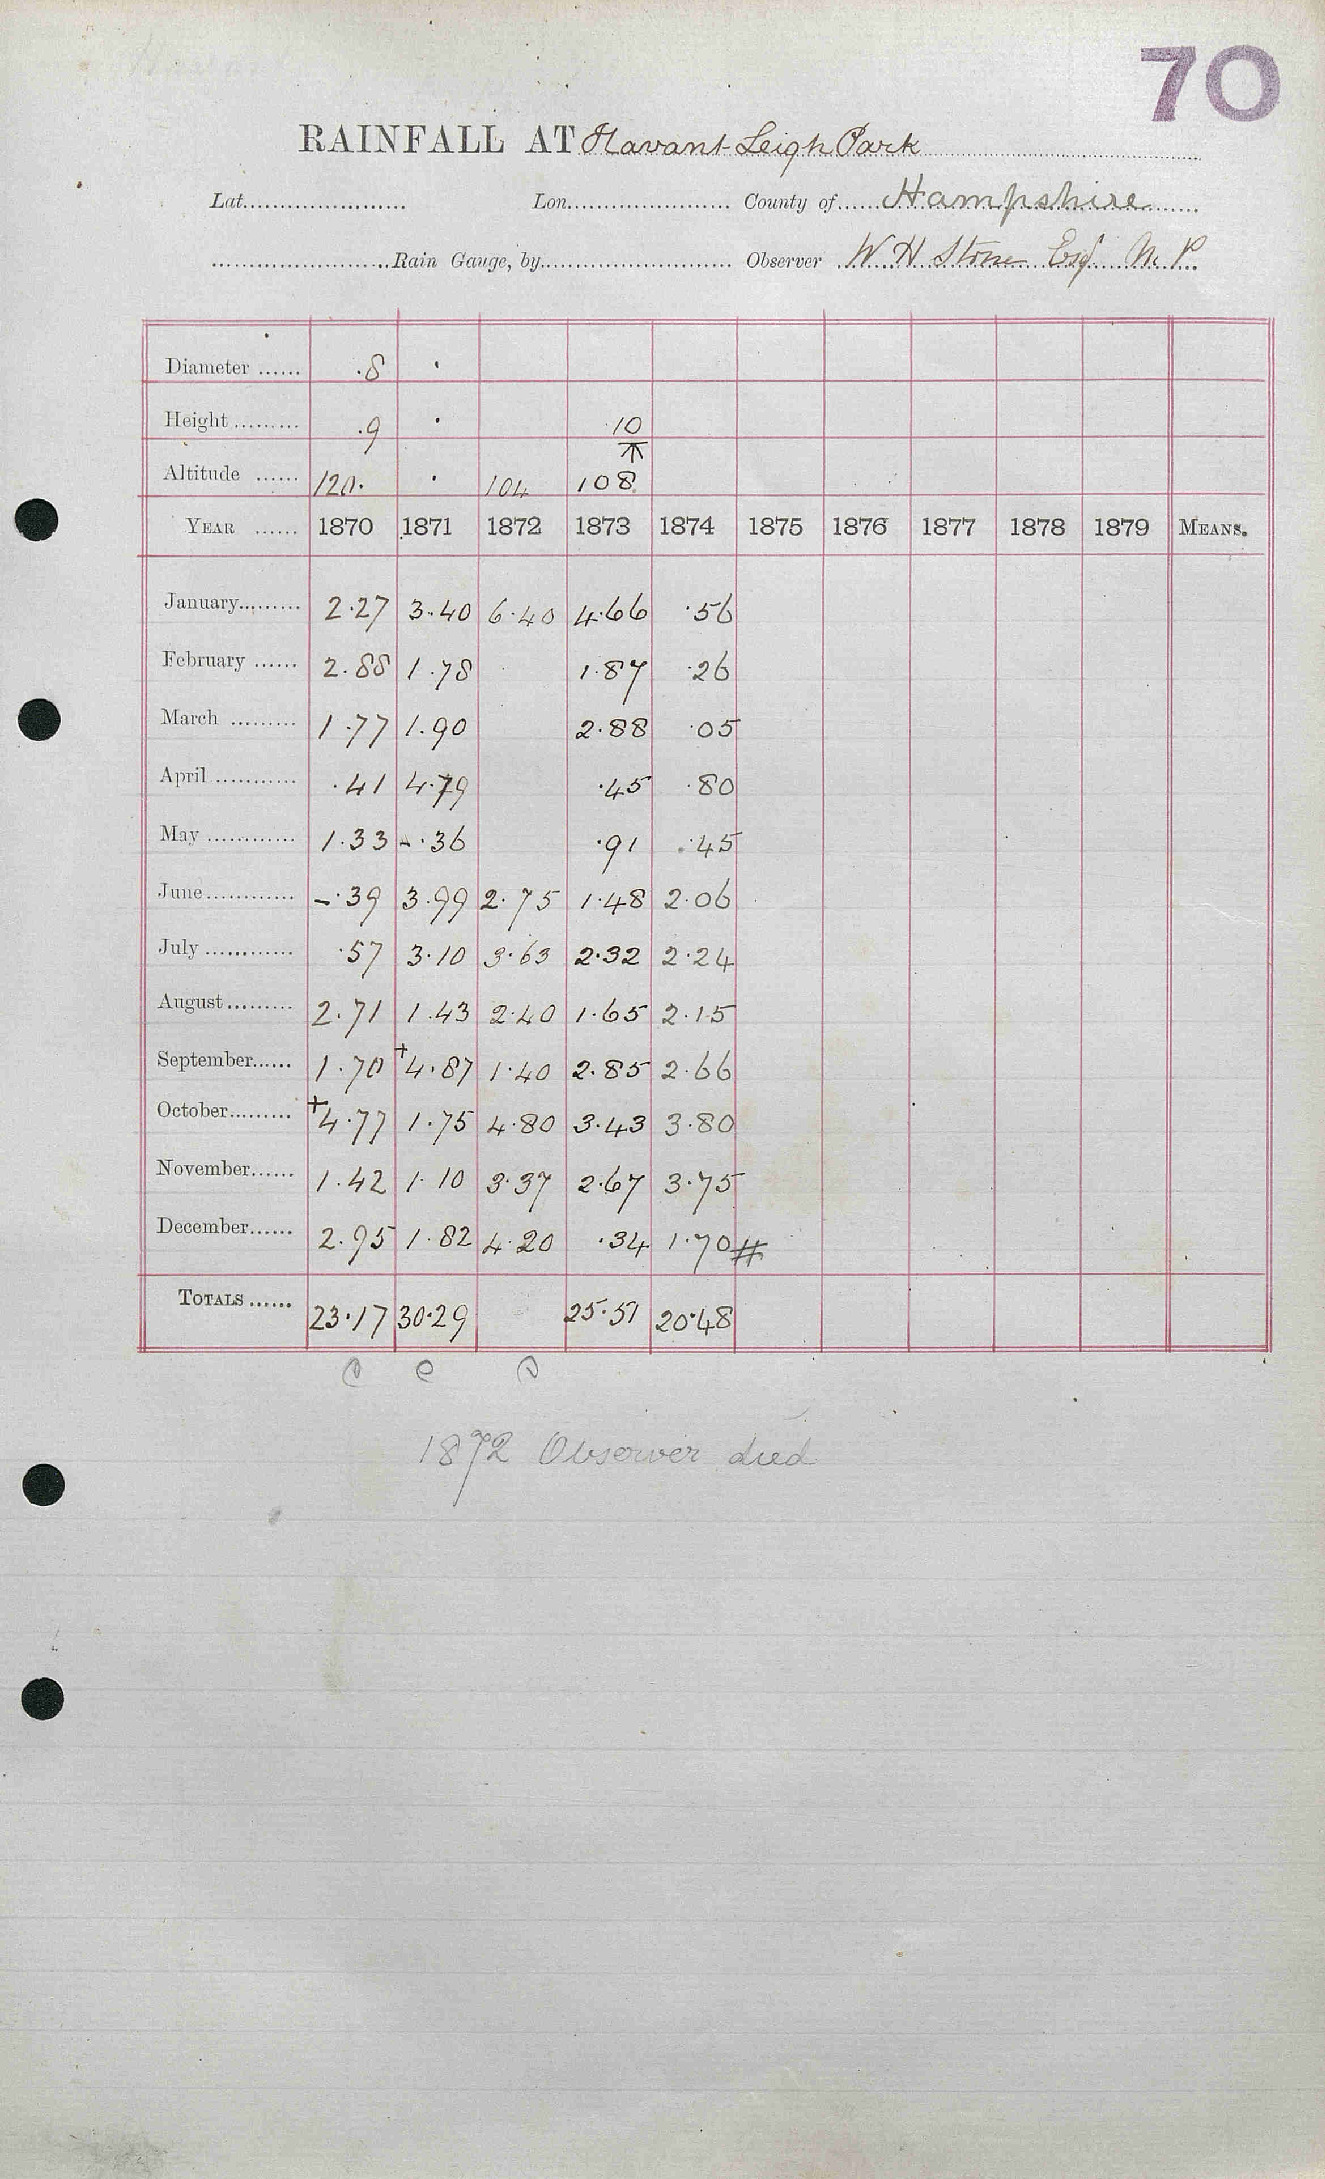 70
RAINFALL AT Havant Leigh Park
Lat. Lon. County of Hampshire
Rain Gauge, by Observer W H Stone Esqr M.P.
Diameter .8 .
Height .9 . 10
Altitude 120. . 104 108
YEAR 1870 1871 1872 1873 1874 1875 1876 1877 1878 1879 MEANS.
January 2.27 3.40 6.40 4.66 .56
February 2.88 1.78 1.87 .26
March 1.77 1.90 2.88 .05
April .41 4.79 .45 .80
May 1.33 -.36 .91 .45
June -.39 3.99 2.75 1.48 2.06
July .57 3.10 3.63 2.32 2.24
August 2.71 1.43 2.40 1.65 2.15
September 1.70 +4.87 1.40 2.85 2.66
October +4.77 1.75 4.80 3.43 3.80
November 1.42 1.10 3.37 2.67 3.75
December 2.95 1.82 4.20 .34 1.70 #
TOTALS 23.17 30.29 25.51 20.48
1872 Observer died